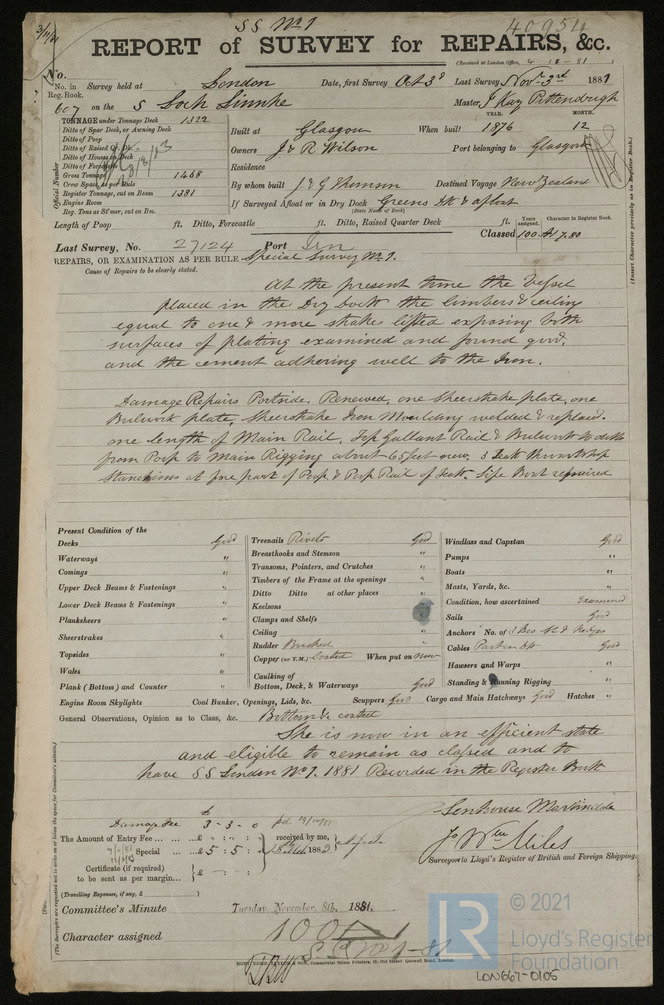 SS No 1
40954
REPORT of SURVEY for REPAIRS, &c.
(Received at London Office, 4 11 81)
No.
No. in Reg. Book. Survey held at London Date, first Survey Oct 3d Last Survey Novr 3rd 1881
607 on the S Loch Linnhe Master, J Kay Pittendrigh
TONNAGE under Tonnage Deck 1322
Ditto of Spar Deck, or Awning Deck
Ditto of Poop
Ditto of Raised Qr. Dk.
Ditto of Houses on Deck
Ditto of Forecastle
Gross Tonnage 1468
Cross Space, as per Rule
Register Tonnage, cut on Beam 1381
Engine Room
Reg. Tons as St'mer, cut on Bm.
Official Number
Built at Glasgow When built YEAR. 1876 MONTH. 12
Owners J & R Wilson Port belonging to Glasgow
Residence
By whom built J & G Thomson Destined Voyage New Zealand
If Surveyed Afloat or in Dry Dock Greens DD & afloat
(State Name of Dock)
Length of Poop ft. Ditto, Forecastle ft. Ditto, Raised Quarter Deck ft.
Years assigned. Character in Register Book.
Classed 100 A1 7.80
(Insert Character precisely as in Register Book.)
Last Survey, No. 27124 Port Irn
REPAIRS, OR EXAMINATION AS PER RULE Special Survey No 1.
Cause of Repairs to be clearly stated.
At the present time the Vessel
placed in the Dry Dock the limbers & ceiling
equal to one & more strakes lifted exposing both
surfaces of plating examined and found good,
and the cement adhering well to the Iron.
Damage Repairs Portside, Renewed, one sheerstrake plate, one
Bulwark plate, Sheerstrake Iron Moulding welded & replaced.
one length of Main Rail, Top Gallant Rail & Bulwark
from Poop to Main Rigging about 65 feet new. 3 Teak
Stanchions at fore part of Poop & Poop Rail of Teak. Life Boat repaired
Present Condition of the
Decks Good
Waterways "
Comings "
Upper Deck Beams & Fastenings "
Lower Deck Beams & Fastenings "
Planksheers "
Sheerstrakes "
Topsides "
Wales "
Plank (Bottom) and Counter "
Treenails Rivets Good
Breasthooks and Stemson "
Transoms, Pointers, and Crutches "
Timbers of the Frame at the openings "
Ditto Ditto at other places "
Keelsons
Clamps and Shelfs
Ceiling "
Rudder Bushed "
Copper (or Y.M.) Coated When put on now
Caulking of
Bottom, Deck, & Waterways Good
Windlass and Capstan Good
Pumps "
Boats "
Masts, Yards, &c. "
Condition, how ascertained Examined
Sails Good
Anchors No. of 3 Bos
Cables Good
Hawsers and Warps "
Standing & Running Rigging "
Engine Room Skylights Coal Bunker, Openings, Lids, &c. Scuppers Good Cargo and Main Hatchways Good Hatches "
General Observations, Opinion as to Class, &c. Bottom coated
She is now in an efficient state
and eligible to remain as classed and to
have SS London No 1. 1881 Recorded in the Register Book
£
Damage Fee 3 - 3 - 0
The Amount of Entry Fee £ : :
Special £ 5 : 5 :
received by me,
Certificate (if required) to be sent as per margin £
(Travelling Expenses, if any, £ )
Senhouse Martindale
Jo Wm Miles
Surveyors to Lloyd's Register of British and Foreign Shipping.
Committee's Minute Tuesday, November 8th, 1881.
Character assigned 100 A 1
S.S. No 1 - 81
LON667-0105
LR
© 2021
Lloyd's Register
Foundation